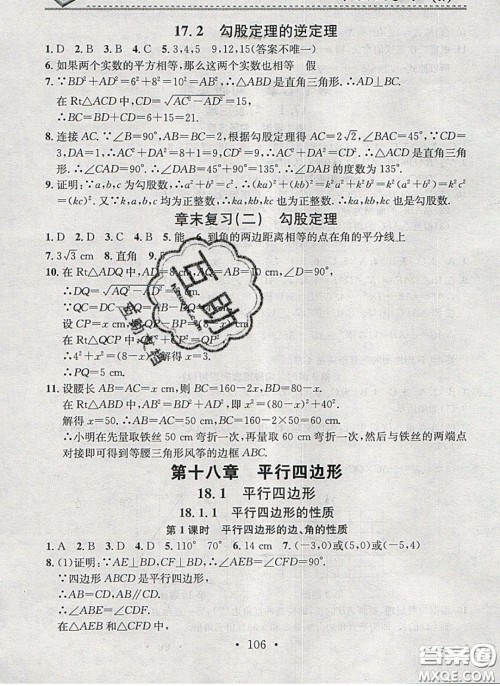 17.2 勾股定理的逆定理
1. D 2. B 3. B 4. C 5. 3,4,5 9,12,15(答案不唯一)
6. 如果两个实数的平方相等,那么这两个实数也相等 假
7. ∵BD²+AD²=6²+8²=10²=AB²,∴△ABD是直角三角形.∴AD⊥BC.
在Rt△ACD中,CD=√(AC²-AD²)=15,
∴BC=BD+CD=6+15=21.
8. 连接AC.∵∠B=90°,AB=BC=2,根据勾股定理得AC=2√2,∠BAC=45°.∵CD=
3,DA=1,∴AC²+DA²=8+1=9,CD²=9,∴AC²+DA²=CD².∴△ACD是直角三角
形.∴∠CAD=90°.∴∠DAB=45°+90°=135°.∴∠DAB的度数为135°.
9. 证明:∵a,b,c为勾股数,∴a²+b²=c².∴(ka)²+(kb)²=k²a²+k²b²=k²(a²+b²)=k²c²=
(kc)².又∵k为正整数,∴ka,kb,kc也为正整数.∴ka,kb,kc也是勾股数.
章末复习(二) 勾股定理
1. D 2. D 3. C 4. B 5. 能 6. 到角的两边距离相等的点在角的平分线上
7. 3√3 cm 8. 直角 9.
10. 在Rt△ADQ中,AD=8 cm,AQ=AB=10 cm,∠D=90°,
∴DQ=√(AQ²-AD²) cm.
∵QC=DC-DQ cm.
设CP=x cm,则BP=QP=(8-x) cm.
在Rt△QCP中,CQ²+CP²=QP²
∴4²+x²=(8-x)².解得x=3.
∴PQ=5 cm.
11. 设腰长AB=AC=x cm,则BC=160-2x,BD=80-x.
在Rt△ABD中,AB²=BD²+AD²,即x²=(80-x)²+40².
解得x=50.∴AB=AC=50,BC=160-2×50=60 cm.
∴小明在先量取铁丝50 cm弯折一次,再量取60 cm弯折一次,然后与铁丝的两端点
对接即可得到等腰三角形风筝的边框ABC.
第十八章 平行四边形
18.1 平行四边形
18.1.1 平行四边形的性质
第1课时 平行四边形的边、角的性质
1. A 2. B 3. D 4. D 5. 110° 70° 6. 14 cm 7. (-3,0)或(5,0)或(-5,4)
8. (1)证明:∵AE⊥BD,CF⊥BD,∴∠AEB=∠CFD=90°.
∵四边形ABCD是平行四边形,
∴AB=CD,AB∥CD.
∴∠ABE=∠CDF.
在△ABE和△CDF中,
· 106 ·
互助